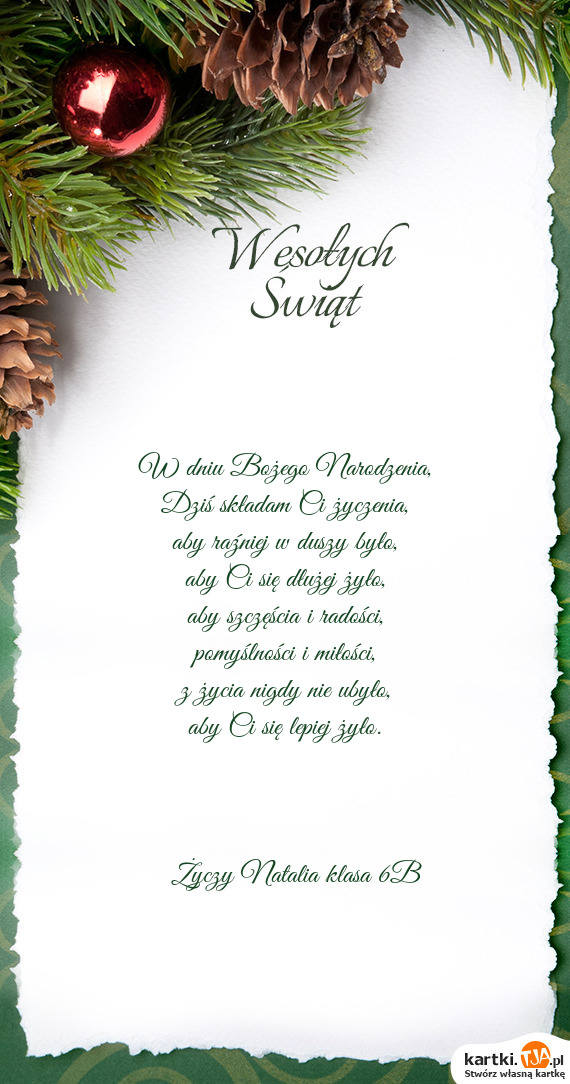 Wesołych
Świąt
W dniu Bożego Narodzenia,
Dziś składam Ci życzenia,
aby raźniej w duszy było,
aby Ci się dłużej żyło,
aby szczęścia i radości,
pomyślności i miłości,
z życia nigdy nie ubyło,
aby Ci się lepiej żyło.
Życzy Natalia klasa 6B
kartki.TJA.pl
Stwórz własną kartkę